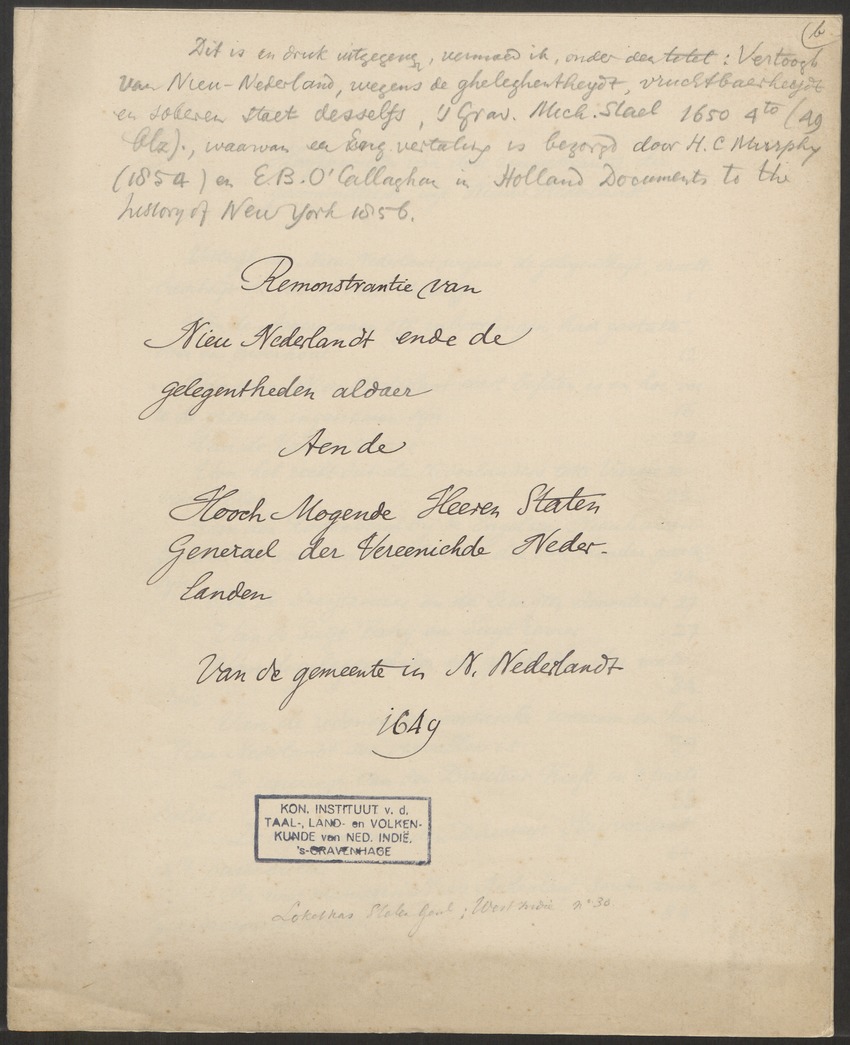 (b
Dit is en druk uitgegeven, vermoed ik, onder den titel: Vertoogh
van Nieu-Nederland, wegens de gheleghentheydt, vruchtbaerheydt
en soberen staet desselfs, 's Grav. Mich. Stael 1650 4to (49
blz)., waarvan en Eng vertaling is bezorgd door H.C Murphy
(1854) en E.B. O'Callaghan in Holland Documents to the
history of New York 1856.
Remonstrantie van
Nieu Nederlandt ende de
gelegentheden aldaer
Aen de
Hooch Mogende Heeren Staten
Generael der Vereenichde Neder-
landen
Van de gemeente in N. Nederlandt
1649
KON. INSTITUUT v. d.
TAAL-, LAND- en VOLKEN-
KUNDE van NED. INDIË.
's-GRAVENHAGE
Loketkas Staten Genl; West Indie no 30